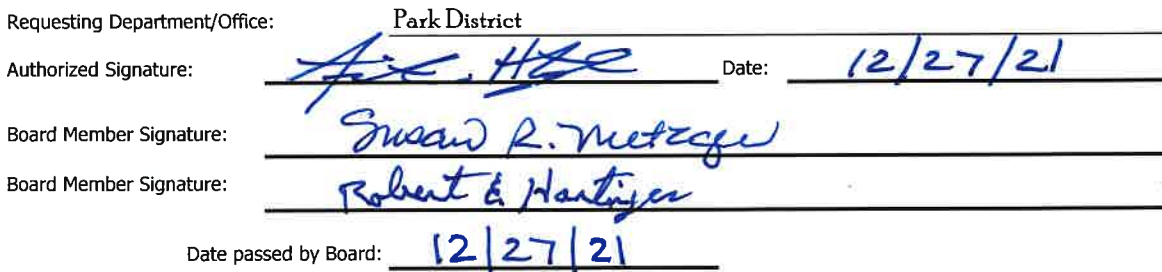 Requesting Department/Office: Park District
Authorized Signature: Date: 12/27/21
Board Member Signature: Susan R. Metzger
Board Member Signature: Robert E Hartinger
Date passed by Board: 12/27/21